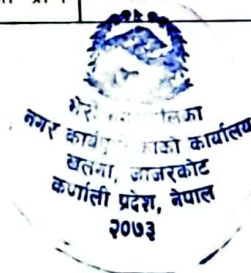 भेरी
नगर कार्य को कार्यालय
खलंगा, जाजरकोट
कर्णाली प्रदेश, नेपाल
२०७३